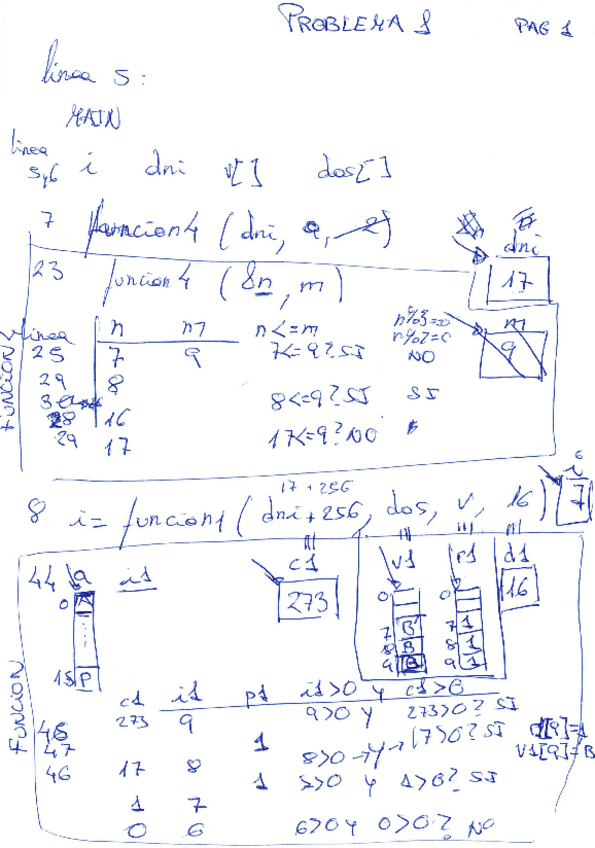 PROBLEMA 1 PAG 1
linea 5:
MAIN
linea
5,6 i dni v[] dos[]
7 funcion4 (dni, 9,
dni
17
23 funcion4 (&n, m)
linea n m n<=m n%3=0 m
n%2=0
25 7 9 7<=9? SI NO 9
29 8
8<=9? SI SI
28 16
29 17 17<=9? NO
FUNCION 4
17 + 256 i
8 i = funcion1 (dni+256, dos, v, 16) 7
c1 v1 p1 d1
44 a i1 273 16
0 A 0 0
7 B 7 1
8 B 8 1
15 P 9 B 9 1
FUNCION
c1 i1 p1 i1>0 y c1>0
273 9 9>0 y 273>0? SI
46 1 8>0 y 17>0? SI
47 V1[9]=B
46 17 8 1 y 1>0? SI
1 7
0 6 6>0 y 0>0? NO